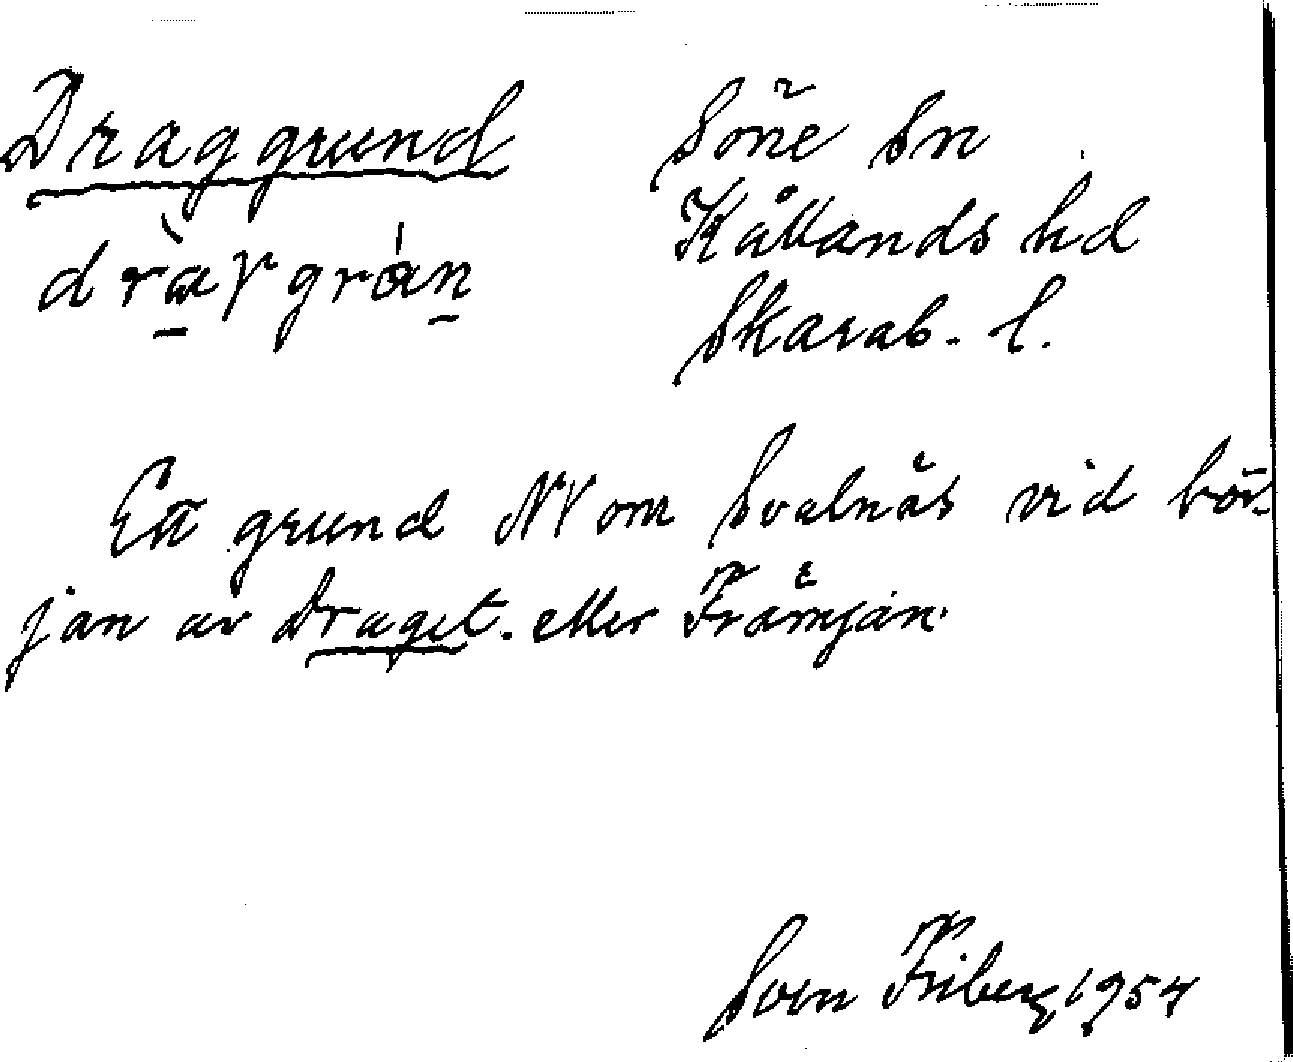 Draggrund
Söne Sn
Kållands hd
Skarab. l.
Ett grund NV om Svalnäs vid bör-
jan av Draget. eller Främjan.
Sven Friberg 1954